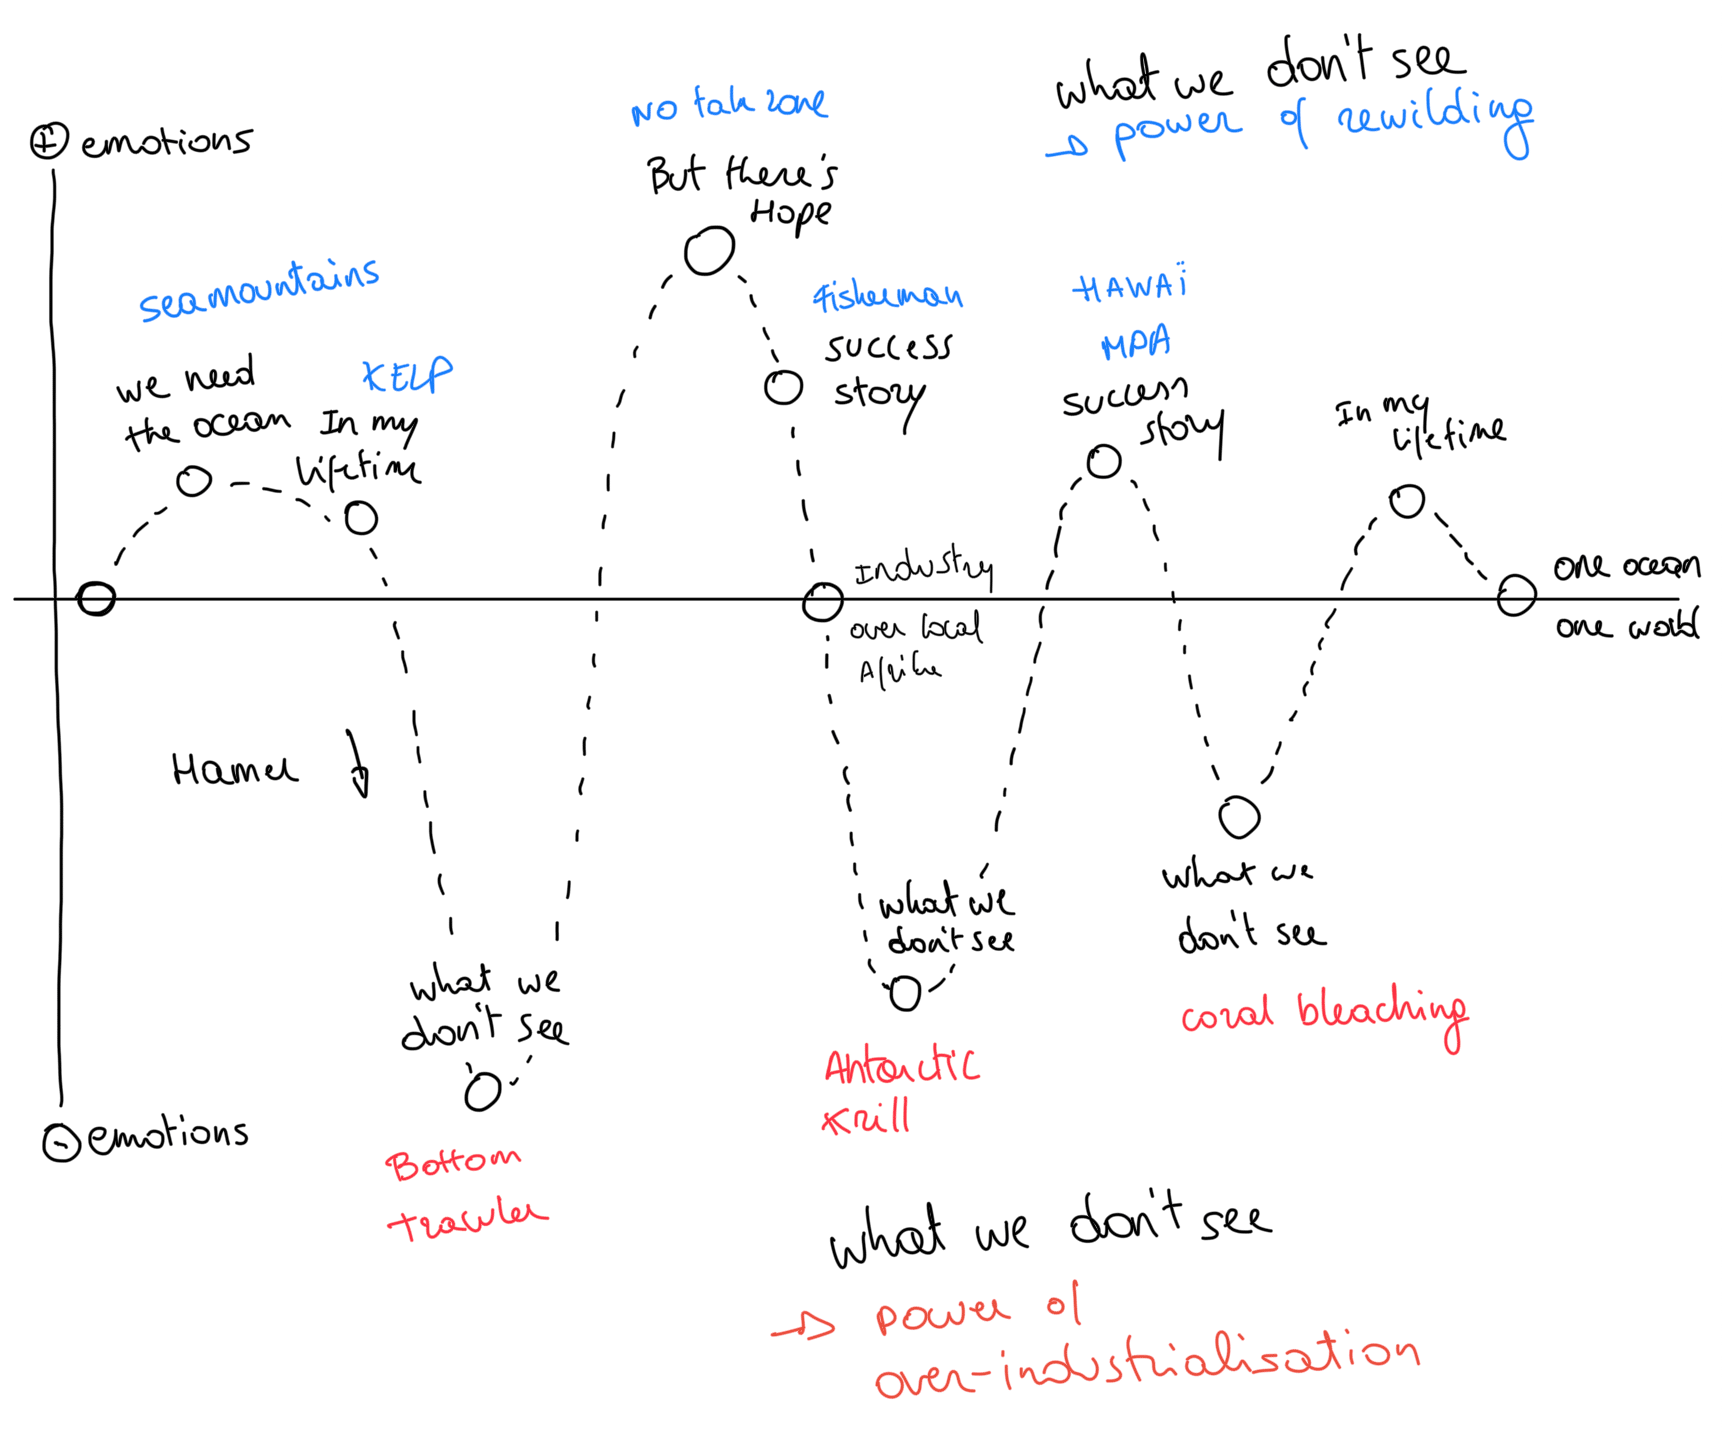 what we don't see
→ power of rewilding
+ emotions
No take zone
But there's
Hope
seamountains
we need
the ocean
KELP
In my
lifetime
fisherman
success
story
HAWAÏ
MPA
success
story
In my
lifetime
Industry
over local
one ocean
one world
what we
don't see
Bottom
trawler
what we
don't see
Antarctic
Krill
what we
don't see
coral bleaching
- emotions
what we don't see
→ power of
over-industrialisation